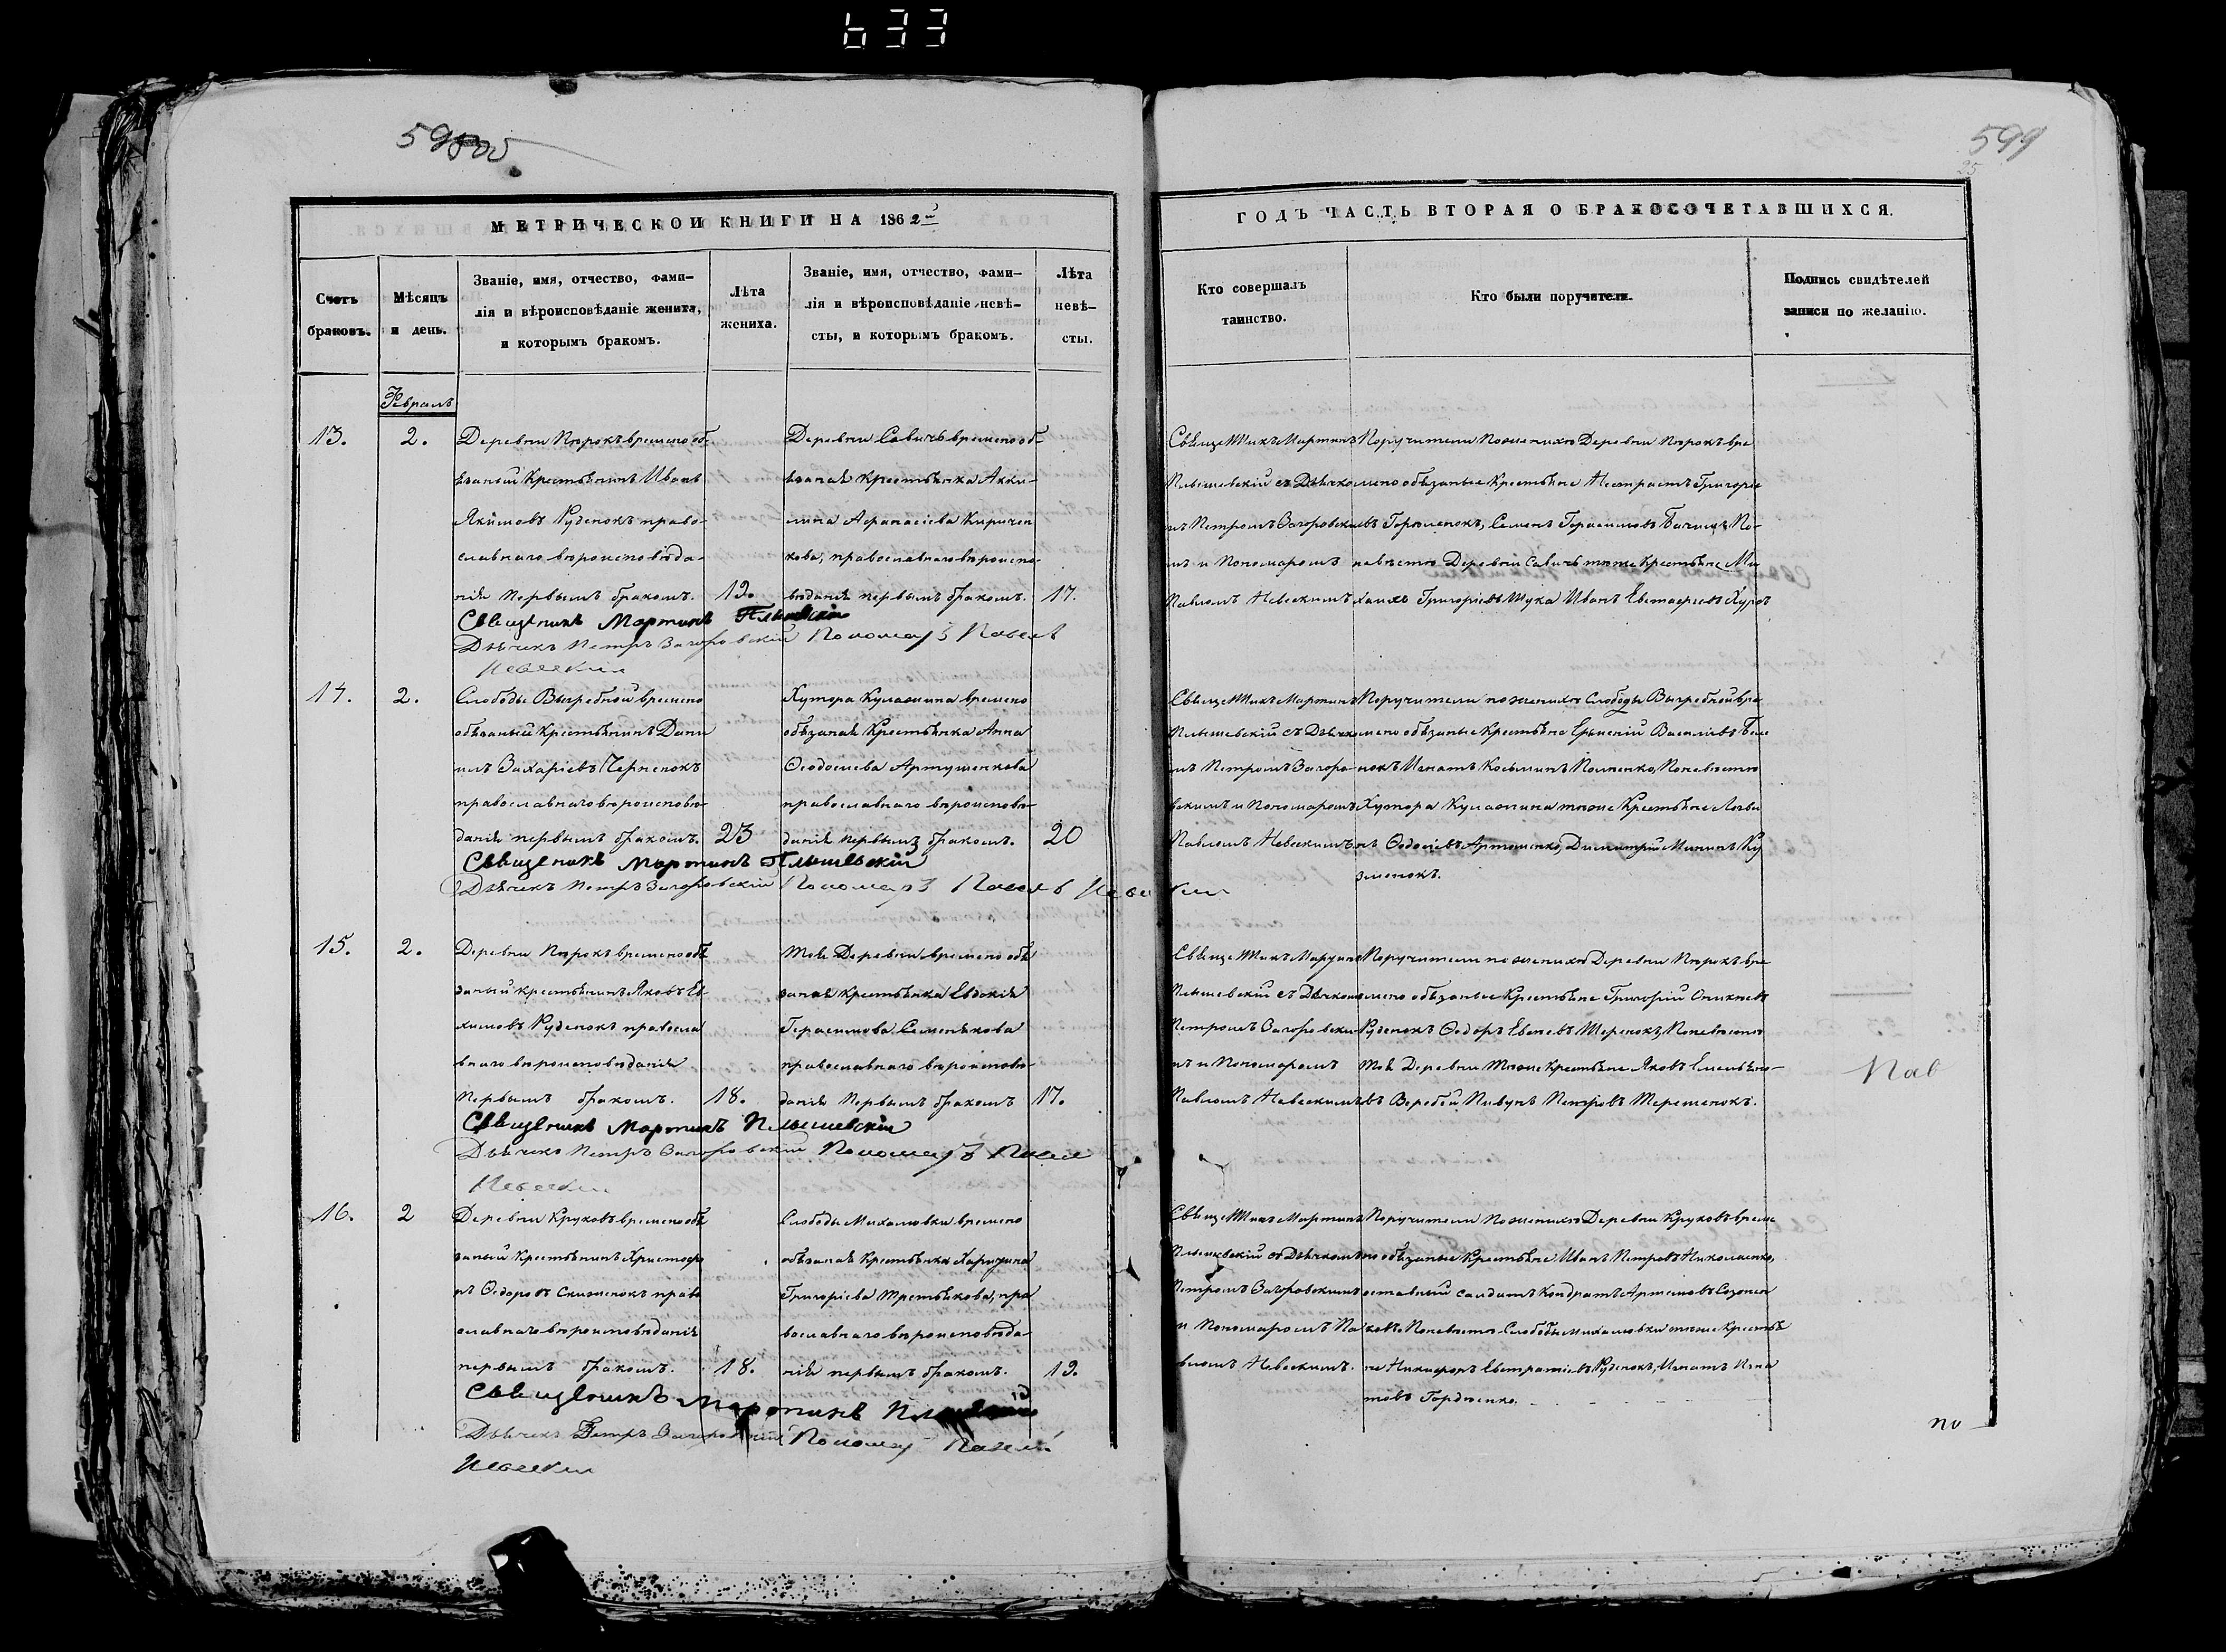 633
599
25
МЕТРИЧЕСКОЙ КНИГИ НА 1862й
ГОДЪ ЧАСТЬ ВТОРАЯ О БРАКОСОЧЕТАВШИХСЯ.
Счетъ браковъ.
Мѣсяцъ и день.
Званіе, имя, отчество, фами-
лія и вѣроисповѣданіе жениха,
и которымъ бракомъ.
Лѣта
жениха.
Званіе, имя, отчество, фами-
лія и вѣроисповѣданіе невѣ-
сты, и которымъ бракомъ.
Лѣта
невѣ-
сты.
Кто совершалъ
таинство.
Кто были поручители.
Подпись свидѣтелей
записи по желанію.
Февраль
13.
2.
Деревни Пѣрокъ временооб-
ѣзаный Крестьѣнинъ Иванъ
Якимовъ Руденокъ право-
славнаго вѣроисповѣда-
нія Первымъ бракомъ.
19.
Деревни Савичь временооб-
ѣзаная Крестьѣнка Аκκи-
лина Афанасіева Киричен
кова, православнаго вѣроиспо-
вѣданія первымъ бракомъ.
17.
Свѣщенникъ Мартинъ
Пльшевскій съ Дьячко
мъ Петромъ Загоровски
мъ и Пономаромъ
Павломъ Невскимъ
Поручители Поженихѣ Деревни Пѣрокъ вре
мено обѣзаные Крестьѣне Григорie
въ Горюленокъ, Семенъ Герасимовъ По-
невѣстѣ Деревни Савичь тоже Крестьѣне Ми
хаилъ Григоріевъ Шука Иванъ Евстафіевъ
Свѣщеникъ Мартинъ Пльшевскій
Дьячекъ Петръ Загоровскій Пономарь Павелъ
Невскій
14.
2.
Слободы Вызребной времено
обѣзаный Крестьѣнинъ Дани
илъ Захаріевъ Черненокъ
православнаго вѣроисповѣ-
данія первымъ бракомъ.
23
Хутора Кулажина времено
обѣзаная Крестьѣнка Анна
Ѳеодосіева Артушенкова
православнаго вѣроисповѣ-
данія первымъ бракомъ.
20
Свѣщенникъ Мартинъ
Пльшевскій съ Дьячко
мъ Петромъ Загоро-
вскимъ и Пономаромъ
Павломъ Невскимъ
Поручители поженихѣ Слободы Вызребной вре
мено обѣзаные Крестьѣне Василіевъ
Игнатъ Косминъ Поневѣстѣ
Хутора Кулажина тоже Крестьѣне
Ѳедосіевъ Артюшенко, Димитрій Мининъ Ку
зменокъ.
Свѣщеникъ Мартинъ Пльшевскій
Дьячекъ Петръ Загоровскій Пономарь Павелъ Невскій
15.
2.
Деревни Пѣрокъ временообѣ
заный крестьѣнинъ Яковъ Ев
химовъ Руденокъ правосла
внаго вѣроисповѣданія
Первымъ бракомъ.
18.
Той Деревни временообѣ
заная крестьѣнка Евдокія
Герасимова Семенькова
православнаго вѣроисповѣ-
данія Первымъ бракомъ
17.
Свѣщенникъ Мартинъ
Пльшевскій съ Дьячкомъ
Петромъ Загоровски
мъ и Пономаромъ
Павломъ Невскимъ
Поручители поженихѣ Деревни Пѣрокъ вре
мено обѣзаные Крестьѣне Григорій
Руденокъ Ѳедоръ Терешокъ, Поневѣстѣ
Той Деревни Тоже крестьѣне Яковъ Емельѣно-
въ Веребей Петровъ Терешенокъ.
Пав
Свѣщеникъ Мартинъ Пльшевскій
Дьячекъ Петръ Загоровскій Пономарь Павелъ
Невскій
16.
2
Деревни Круковъ временообѣ
заный Крестьѣнинъ Христофо
ръ Ѳедоровъ Скиженокъ право
славнаго вѣроисповѣданія
первымъ бракомъ.
18.
Слободы Михаловки времено
обѣзаная Крестьѣнка Харитина
Григоріева Третьѣкова, пра
вославнаго вѣроисповѣда-
нія первымъ бракомъ.
19.
Свѣщенникъ Мартинъ
Пльшевскій съ Дьячкомъ
Петромъ Загоровскимъ
и Пономаромъ Па
вломъ Невскимъ.
Поручители Поженихѣ Деревни Круковъ време
но обѣзаные Крестьѣне Иванъ Петровъ Николаенко,
оставный салдатъ Кондратъ Артемовъ
Поневѣстѣ Слободы Михаловки тоже Крестьѣ
не Никифоръ Евстратіевъ Руденокъ, Игнатъ Игна
товъ Гордиенко.
Свѣщеникъ Мартинъ
Дьячекъ Петръ Загоровскій Пономарь Павелъ
Невскій
по